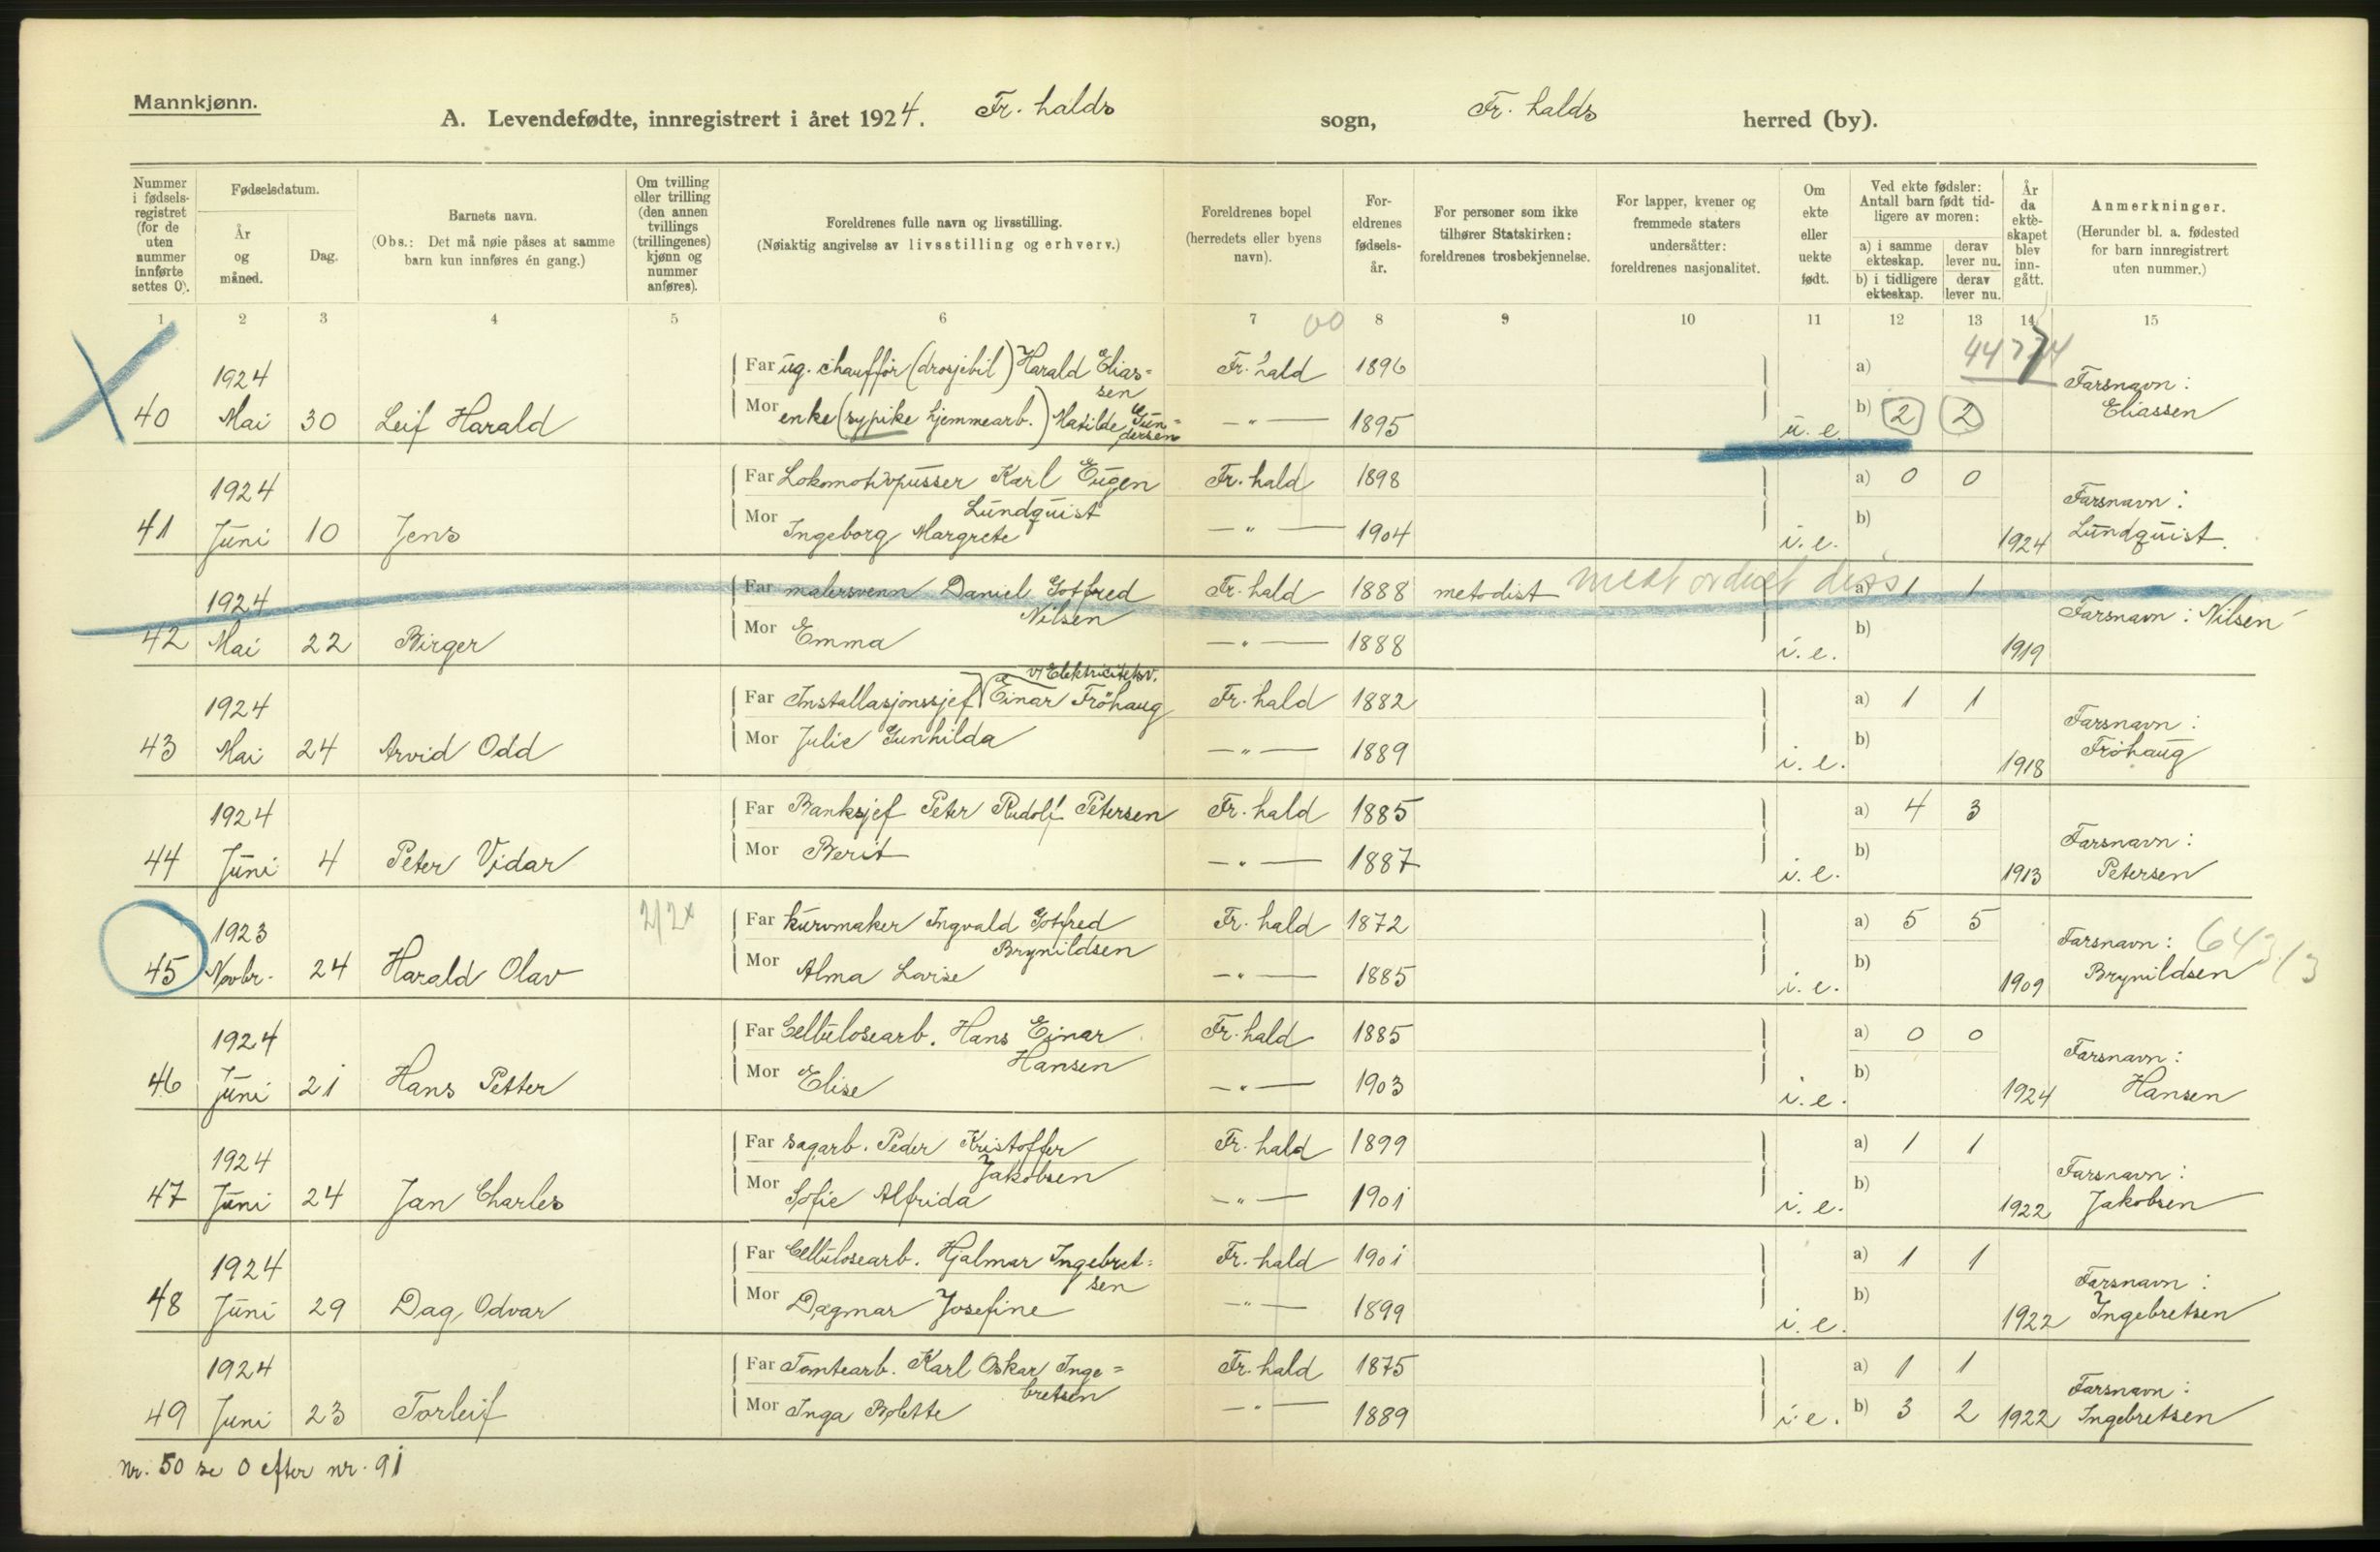 Mannkjønn.
A. Levendefødte, innregistrert i året 1924. Fr. halds sogn, Fr. halds herred (by).
Nummer i fødsels-registret (for de uten nummer innførte settes 0).
Fødselsdatum.
År og måned.
Dag.
Barnets navn.
(Obs.: Det må nøie påses at samme barn kun innføres én gang.)
Om tvilling eller trilling (den annen tvillings (trillingenes) kjønn og nummer anføres).
Foreldrenes fulle navn og livsstilling.
(Nøiaktig angivelse av livsstilling og erhverv.)
Foreldrenes bopel (herredets eller byens navn).
For-eldrenes fødsels-år.
For personer som ikke tilhører Statskirken: foreldrenes trosbekjennelse.
For lapper, kvener og fremmede staters undersåtter: foreldrenes nasjonalitet.
Om ekte eller uekte født.
Ved ekte fødsler: Antall barn født tid-ligere av moren:
a) i samme ekteskap. derav lever nu.
b) i tidligere ekteskap. derav lever nu.
År da ekte-skapet blev inn-gått.
Anmerkninger.
(Herunder bl. a. fødested for barn innregistrert uten nummer.)
1 2 3 4 5 6 7 8 9 10 11 12 13 14 15
1924 Far ug. chauffør (drosjebil) Harald Elias= Fr. hald 1896 a) Farsnavn:
sen
40 Mai 30 Leif Harald Mor enke (sypike hjemmearb.) Matilde Gun= —"— 1895 u. e. b) 2 2 Eliassen
dersen
1924 Far Lokomotivpusser Karl Eugen Fr. hald 1898 a) 0 0 Farsnavn:
Lundquist
41 Juni 10 Jens Mor Ingeborg Margrete —"— 1904 i. e. b) 1924 Lundquist.
1924 Far malersvenn Daniel Gotfred Fr. hald 1888 metodist a) 1 1 Farsnavn: Nilsen
Nilsen
42 Mai 22 Birger Mor Emma —"— 1888 i. e. b) 1919
v/ Elektricitetsv.
1924 Far Installasjonssjef Einar Fröhaug Fr. hald 1882 a) 1 1 Farsnavn:
43 Mai 24 Arvid Odd Mor Julie Gunhilda —"— 1889 i. e. b) 1918 Fröhaug
1924 Far Banksjef Peter Rudolf Petersen Fr. hald 1885 a) 4 3 Farsnavn:
44 Juni 4 Peter Vidar Mor Berit —"— 1887 i. e. b) 1913 Petersen
1923 Far kurvmaker Ingvald Gotfred Fr. hald 1872 a) 5 5 Farsnavn:
Brynildsen
45 Novbr. 24 Harald Olav Mor Alma Lovise —"— 1885 i. e. b) 1909 Brynildsen
1924 Far Cellulosearb. Hans Einar Fr. hald 1885 a) 0 0 Farsnavn:
Hansen
46 Juni 21 Hans Petter Mor Elise —"— 1903 i. e. b) 1924 Hansen
1924 Far sagarb. Peder Kristoffer Fr. hald 1899 a) 1 1 Farsnavn:
Jakobsen
47 Juni 24 Jan Charles Mor Sofie Alfrida —"— 1901 i. e. b) 1922 Jakobsen
1924 Far Cellulosearb. Hjalmar Ingebret= Fr. hald 1901 a) 1 1 Farsnavn:
sen
48 Juni 29 Dag Odvar Mor Dagmar Josefine —"— 1899 i. e. b) 1922 Ingebretsen
1924 Far Tomtearb. Karl Oskar Inge= Fr. hald 1875 a) 1 1 Farsnavn:
bretsen
49 Juni 23 Torleif Mor Inga Bolette —"— 1889 i. e. b) 3 2 1922 Ingebretsen
Nr. 50 se 0 efter nr. 91